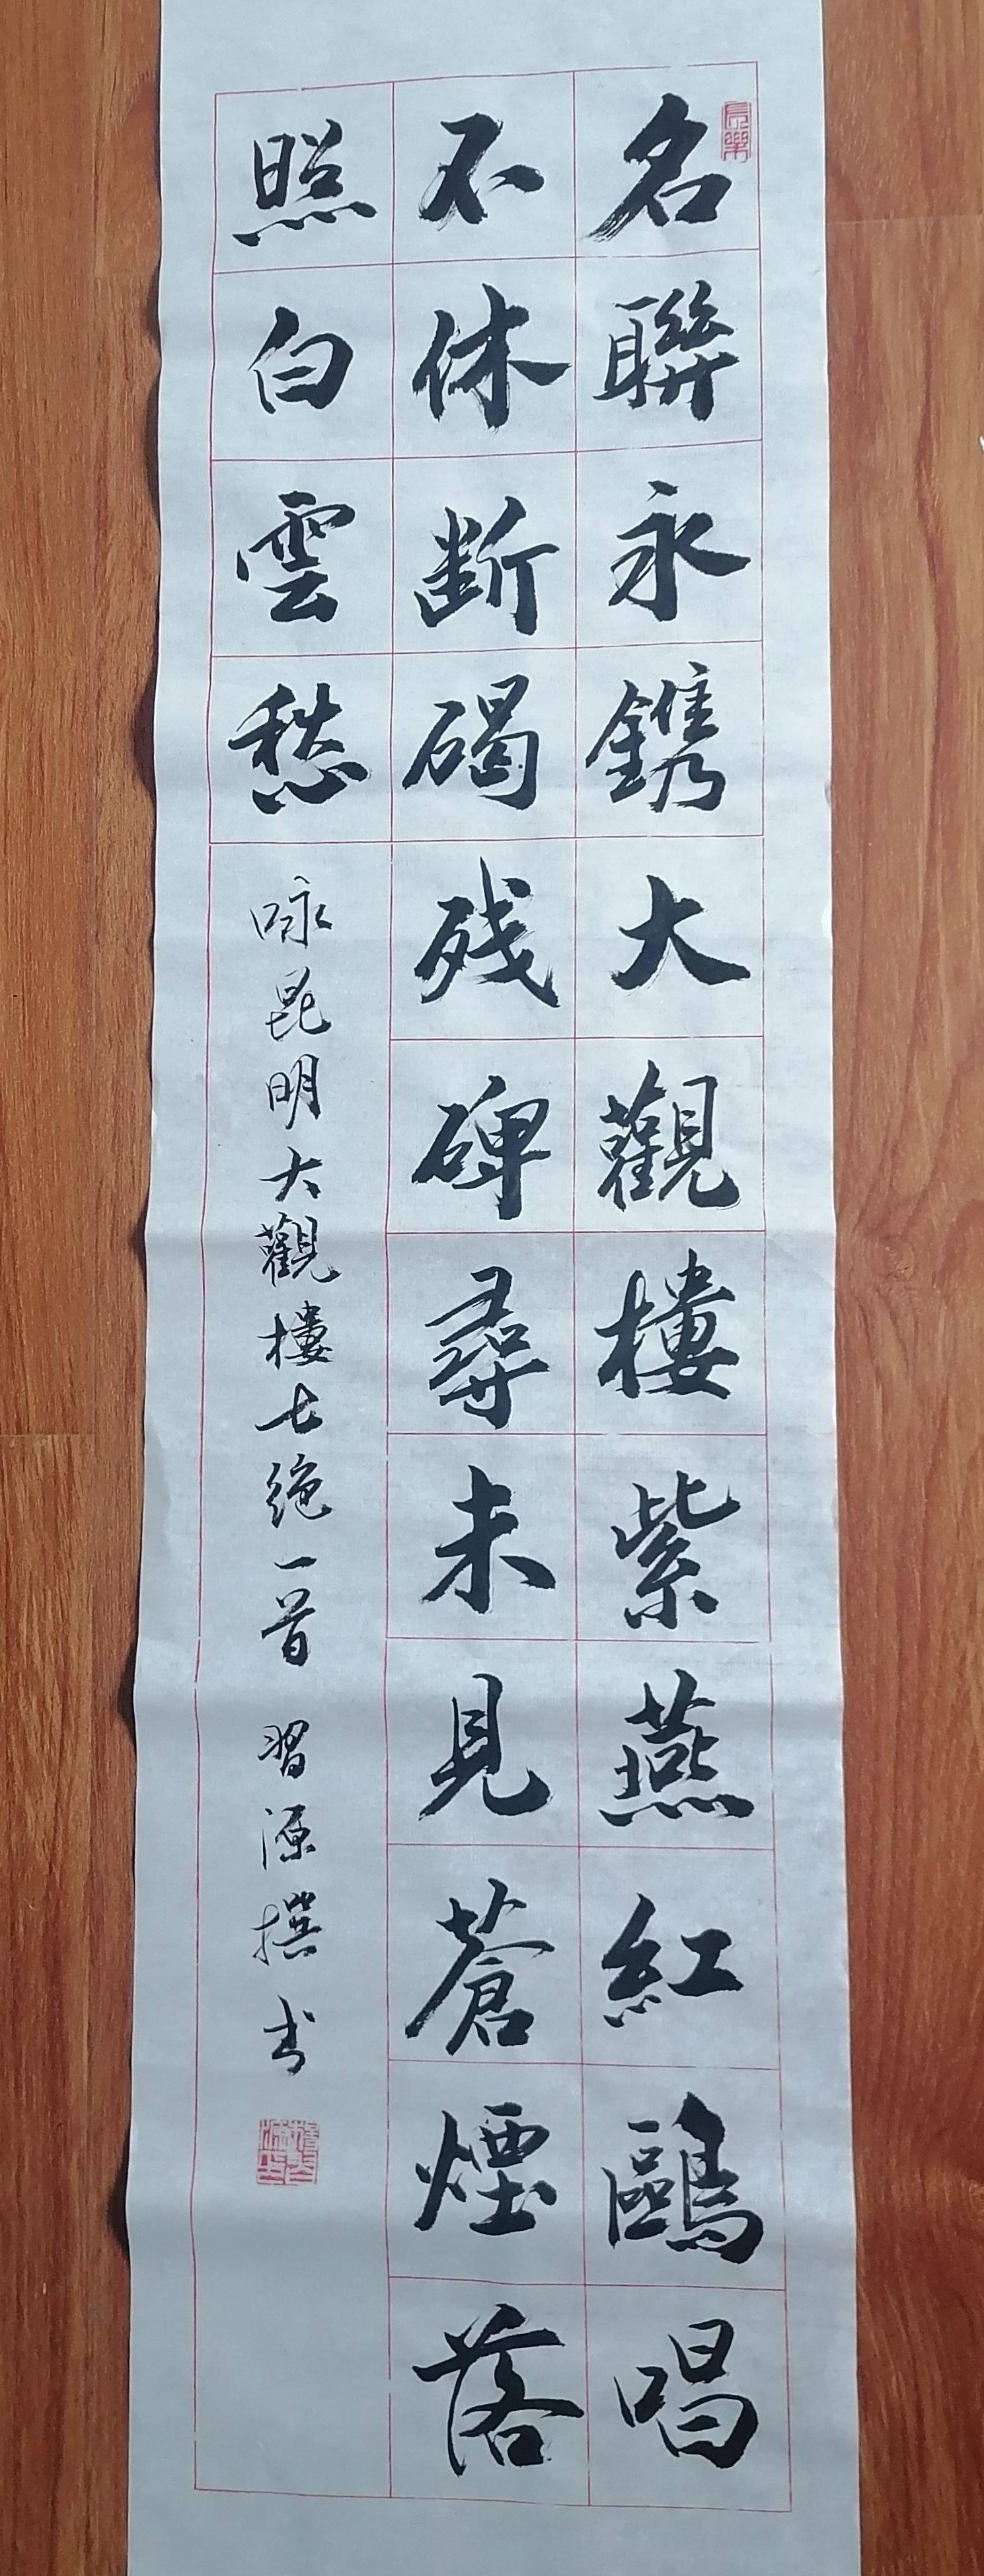 名聯永鐫大觀樓紫燕紅鷗唱
不休断碣残碑尋未見蒼煙落
照白雲愁
咏昆明大觀樓七绝一首 習源撰书